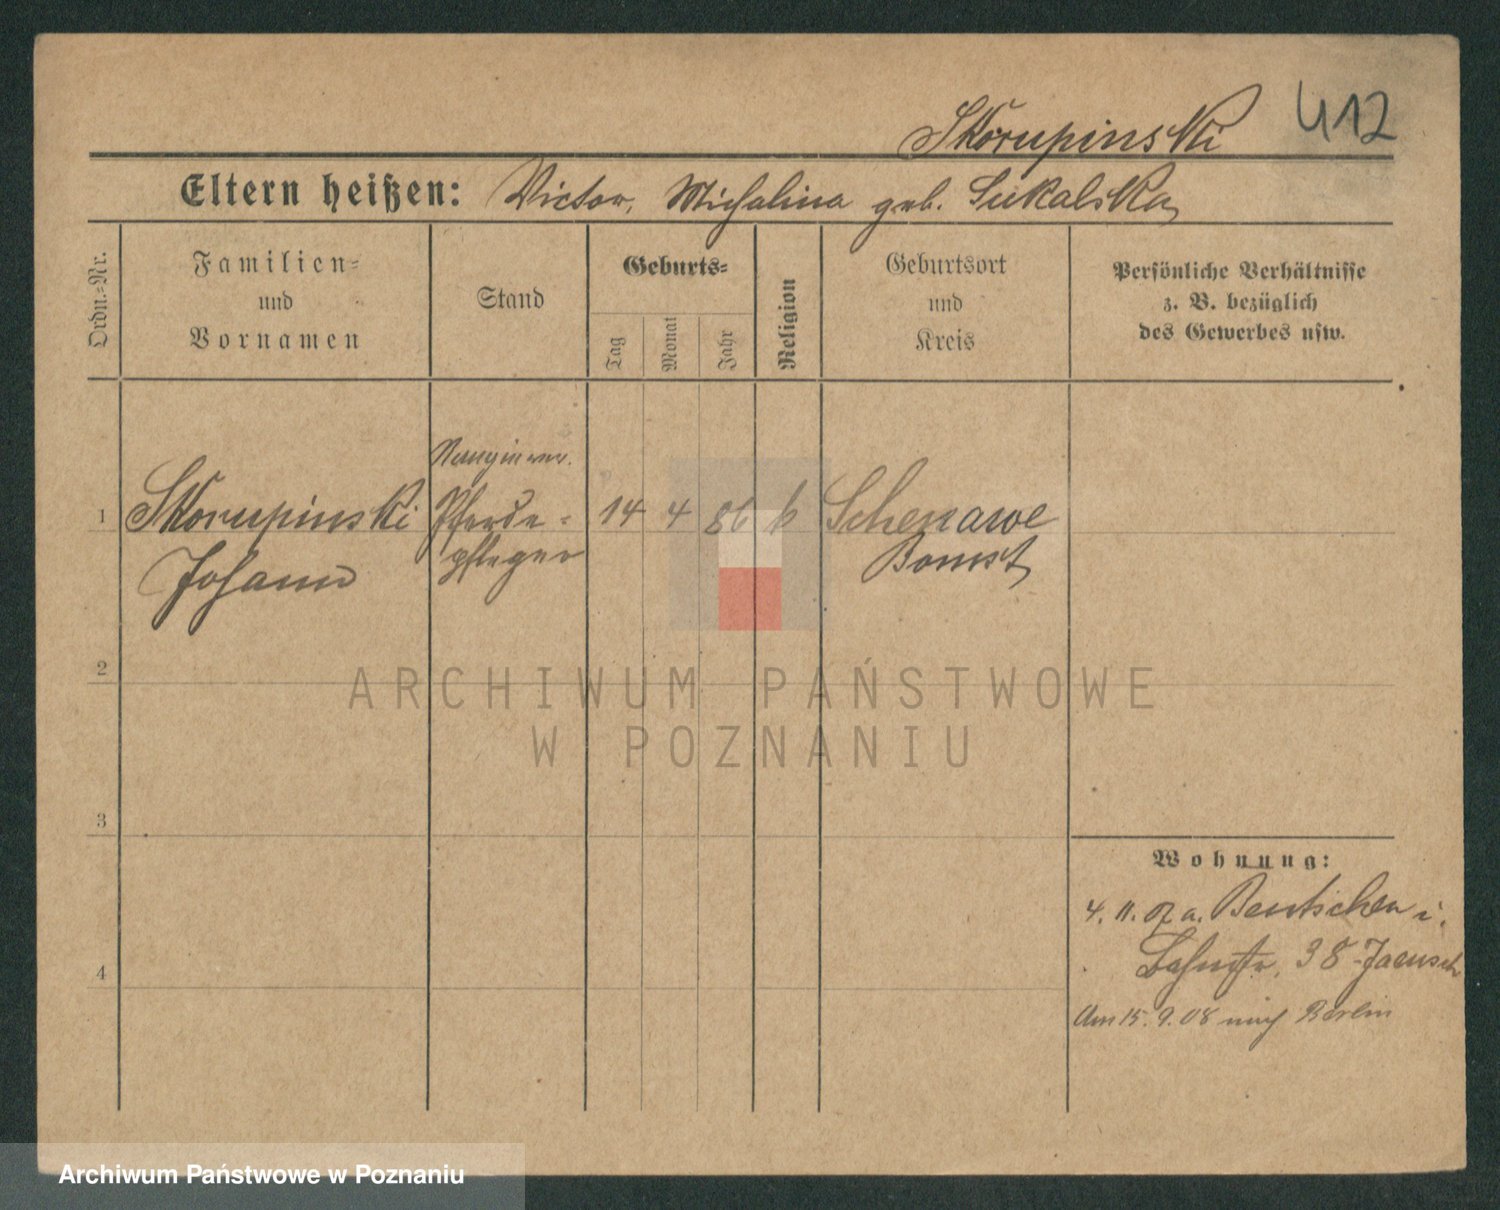 Skorupinski 412
Eltern heißen: Victor, Michalina geb. Sukalska
Ordn.=Nr.
Familien=
und
Vornamen
Stand
Geburts=
Tag
Monat
Jahr
Religion
Geburtsort
und
Kreis
Persönliche Verhältnisse
z. B. bezüglich
des Gewerbes usw.
1 Skorupinski Pferde- 14 4 86 k Schenawe
Johann pfleger Bomst
2
3
4
Wohnung:
4. 11. 07 a. Bentschen i.
Bahnstr. 38 Jaensch
Am 15. 9. 08 nach Berlin
ARCHIWUM PAŃSTWOWE
W POZNANIU
Archiwum Państwowe w Poznaniu